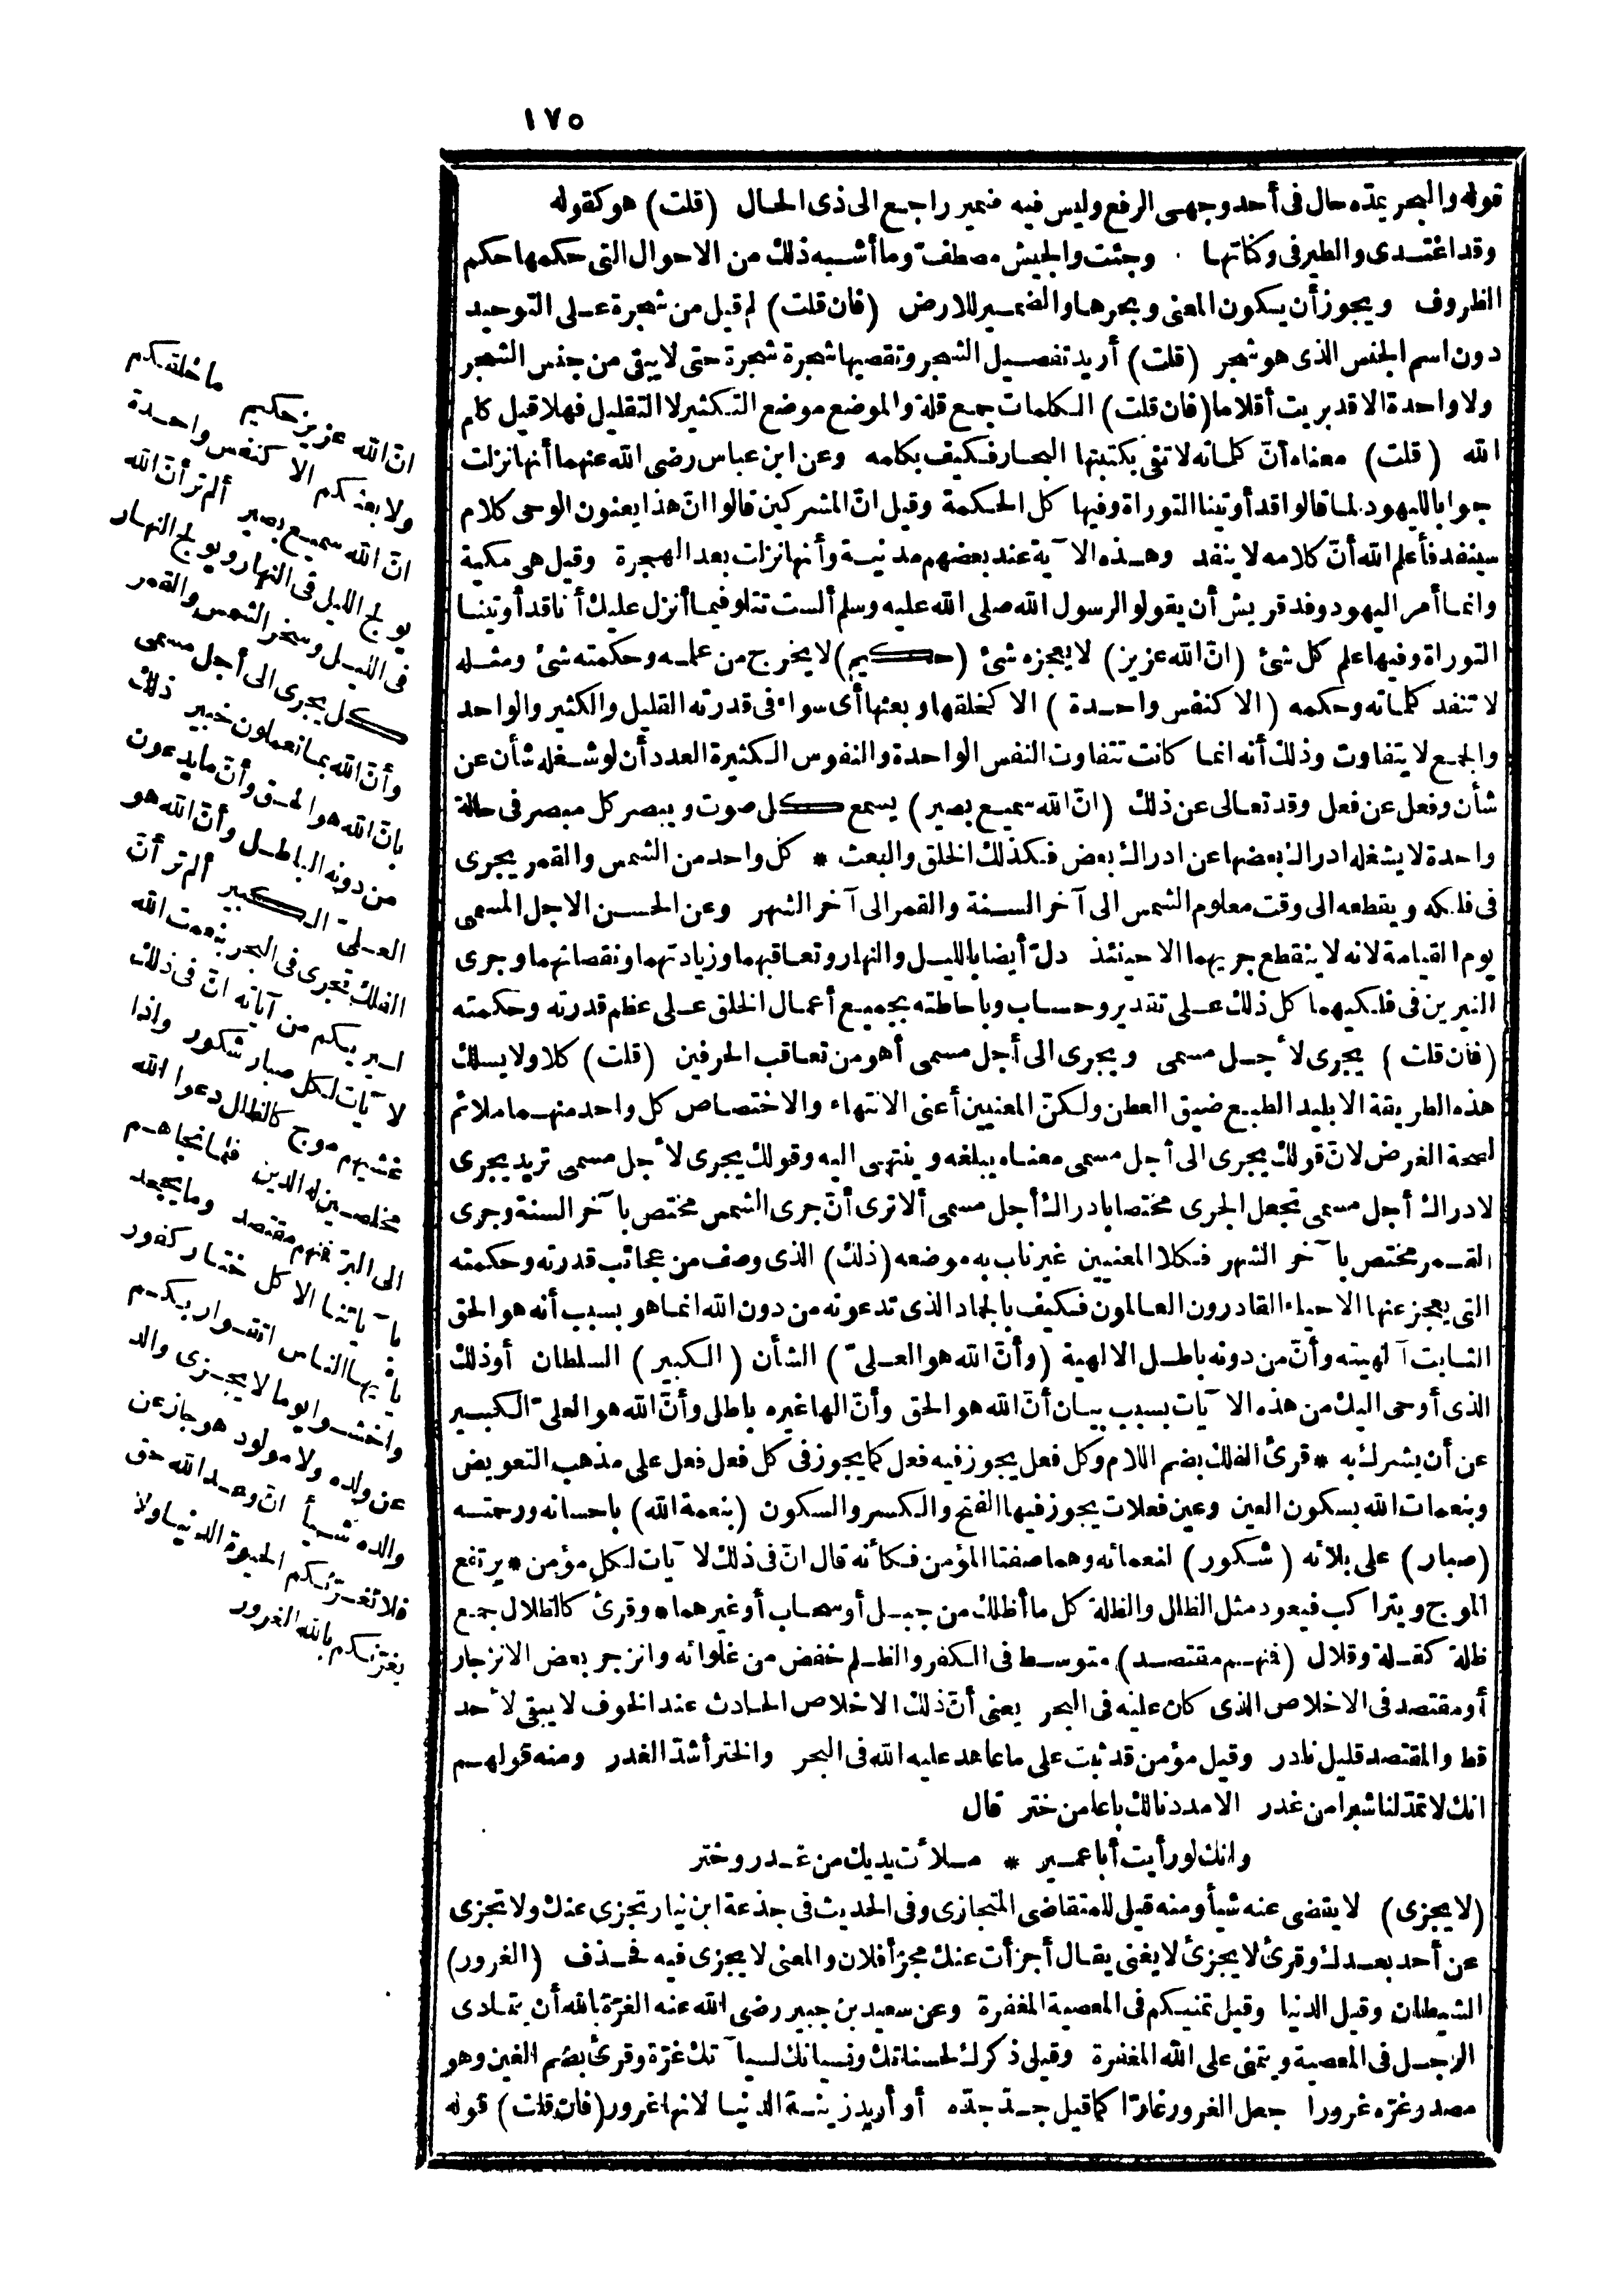 ١٧٥
قوله والبحر يمدّه حال فى أحد وجهى الرفع وليس فيه ضمير راجع الى ذى الحال (قلت) هو كقوله
وقد اغتدى والطير فى وكناتها . وجئت والجيش مصطفّ وما أشبه ذلك من الاحوال التى حكمها حكم
الظروف ويجوز أن يكون المعنى وبحرها والضمير للارض (فان قلت) لم قيل من شجرة على التوحيد
دون اسم الجنس الذى هو شجر (قلت) أريد تفصيل الشجر وتقصيها شجرة شجرة حتى لا يبقى من جنس الشجر
ولا واحدة الا قد بريت أقلاما (فان قلت) الكلمات جمع قلة والموضع موضع التكثير لا التقليل فهلا قيل كلم
الله (قلت) معناه أنّ كلماته لا تفى بكتبتها البحار فكيف بكلمه وعن ابن عباس رضى الله عنهما أنها نزلت
جوابا لليهود لما قالوا قد أوتينا التوراة وفيها كل الحكمة وقيل انّ المشركين قالوا انّ هذا يعنون الوحى كلام
سينفد فأعلم الله أنّ كلامه لا ينفد وهذه الآية عند بعضهم مدنية وأنها نزلت بعد الهجرة وقيل هى مكية
وانما أمر اليهود وفد قريش أن يقولوا لرسول الله صلى الله عليه وسلم ألست تتلو فيما أنزل عليك أنا قد أوتينا
التوراة وفيها علم كل شئ (انّ الله عزيز) لا يعجزه شئ (حكيم) لا يخرج من علمه وحكمته شئ ومثله
لا تنفد كلماته وحكمه (الا كنفس واحدة) الا كخلقها وبعثها أى سواء فى قدرته القليل والكثير والواحد
والجمع لا يتفاوت وذلك أنه انما كانت تتفاوت النفس الواحدة والنفوس الكثيرة العدد أن لو شغله شأن عن
شأن وفعل عن فعل وقد تعالى عن ذلك (انّ الله سميع بصير) يسمع كل صوت ويبصر كل مبصر فى حالة
واحدة لا يشغله ادراك بعضها عن ادراك بعض فكذلك الخلق والبعث * كل واحد من الشمس والقمر يجرى
فى فلكه ويقطعه الى وقت معلوم الشمس الى آخر السنة والقمر الى آخر الشهر وعن الحسن الاجل المسمى
يوم القيامة لانه لا ينقطع جريهما الا حينئذ دلّ أيضا بالليل والنهار وتعاقبهما وزيادتهما ونقصانهما وجرى
النيرين فى فلكيهما كل ذلك على تقدير وحساب وباحاطته بجميع أعمال الخلق على عظم قدرته وحكمته
(فان قلت) يجرى لأجل مسمى ويجرى الى أجل مسمى أهو من تعاقب الحرفين (قلت) كلا ولا يسلك
هذه الطريقة الا بليد الطبع ضيق العطن ولكنّ المعنيين أعنى الانتهاء والاختصاص كل واحد منهما ملائم
لصحة الغرض لانّ قولك يجرى الى أجل مسمى معناه يبلغه وينتهى اليه وقولك يجرى لأجل مسمى تريد يجرى
لادراك أجل مسمى تجعل الجرى مختصا بادراك أجل مسمى ألا ترى أنّ جرى الشمس مختص بآخر السنة وجرى
القمر مختص بآخر الشهر فكلا المعنيين غير ناب به موضعه (ذلك) الذى وصف من عجائب قدرته وحكمته
التى يعجز عنها الاحياء القادرون العالمون فكيف بالجماد الذى تدعونه من دون الله انما هو بسبب أنه هو الحق
الثابت آلهيته وأنّ من دونه باطل الالهية (وأنّ الله هو العلىّ) الشأن (الكبير) السلطان أو ذلك
الذى أوحى اليك من هذه الآيات بسبب بيان أنّ الله هو الحق وأنّ الها غيره باطل وأنّ الله هو العلىّ الكبير
عن أن يشرك به * قرئ الفلك بضم اللام وكل فعل يجوز فيه فعل كما يجوز فى كل فعل فعل على مذهب التعويض
وبنعمات الله بسكون العين وعين فعلات يجوز فيها الفتح والكسر والسكون (بنعمة الله) باحسانه ورحمته
(صبار) على بلائه (شكور) لنعمائه وهما صفتا المؤمن فكأنه قال انّ فى ذلك لآيات لكل مؤمن * يرتفع
الموج ويتراكب فيعود مثل الظلل والظلة كل ما أظلك من جبل أو سحاب أو غيرهما * وقرئ كالظلال جمع
ظلة كقلة وقلال (فمنهم مقتصد) متوسط فى الكفر والظلم خفض من غلوائه وانزجر بعض الانزجار
أو مقتصد فى الاخلاص الذى كان عليه فى البحر يعنى أنّ ذلك الاخلاص الحادث عند الخوف لا يبقى لأحد
قط والمقتصد قليل نادر وقيل مؤمن قد ثبت على ما عاهد عليه الله فى البحر والختر أشدّ الغدر ومنه قولهم
انك لا تمدّ لنا شبرا من غدر الا مددنا لك باعا من ختر قال
وانك لو رأيت أبا عمير * ملأت يديك من غدر وختر
(لا يجزى) لا يقضى عنه شيأ ومنه قيل للمتقاضى المتجازى وفى الحديث فى جذعة ابن نيار تجزى عنك ولا تجزى
عن أحد بعدك وقرئ لا يجزئ لا يغنى يقال أجزأت عنك مجزأ فلان والمعنى لا يجزى فيه فحذف (الغرور)
الشيطان وقيل الدنيا وقيل تمنيكم فى المعصية المغفرة وعن سعيد بن جبير رضى الله عنه الغرّة بالله أن يتمادى
الرجل فى المعصية ويتمنى على الله المغفرة وقيل ذكرك لحسناتك ونسيانك لسيآتك غرّة وقرئ بضم الغين وهو
مصدر غرّه غرورا جعل الغرور غارّا كما قيل جدّ جدّه أو أريد زينة الدنيا لانها غرور (فان قلت) قوله
انّ الله عزيز حكيم ما خلقكم
ولا بعثكم الا كنفس واحدة
انّ الله سميع بصير ألم تر أنّ الله
يولج الليل فى النهار ويولج النهار
فى الليل وسخر الشمس والقمر
كل يجرى الى أجل مسمى
وأنّ الله بما تعملون خبير ذلك
بانّ الله هو الحق وأنّ ما يدعون
من دونه الباطل وأنّ الله هو
العلىّ الكبير ألم تر أنّ
الفلك تجرى فى البحر بنعمت الله
ليريكم من آياته انّ فى ذلك
لآيات لكل صبار شكور واذا
غشيهم موج كالظلل دعوا الله
مخلصين له الدين فلما نجاهم
الى البرّ فمنهم مقتصد وما يجحد
بآياتنا الا كل ختار كفور
يا أيها الناس اتقوا ربكم
واخشوا يوما لا يجزى والد
عن ولده ولا مولود هو جاز عن
والده شيأ انّ وعد الله حق
فلا تغرّنكم الحيوة الدنيا ولا
يغرّنكم بالله الغرور